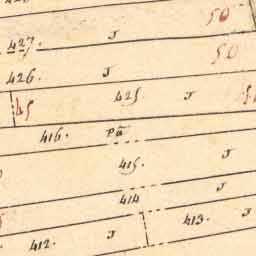 50
427. J
50
426. J
425. J
45
416. pā
415. J
414 J
413. J
412. J